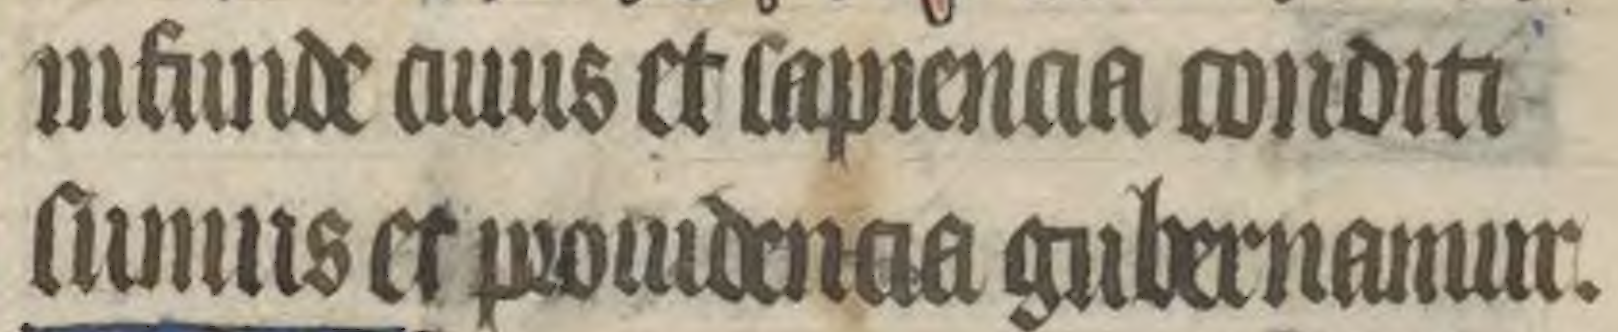 infunde cuius et sapiencia conditi
sumus et prouidencia gubernamur.